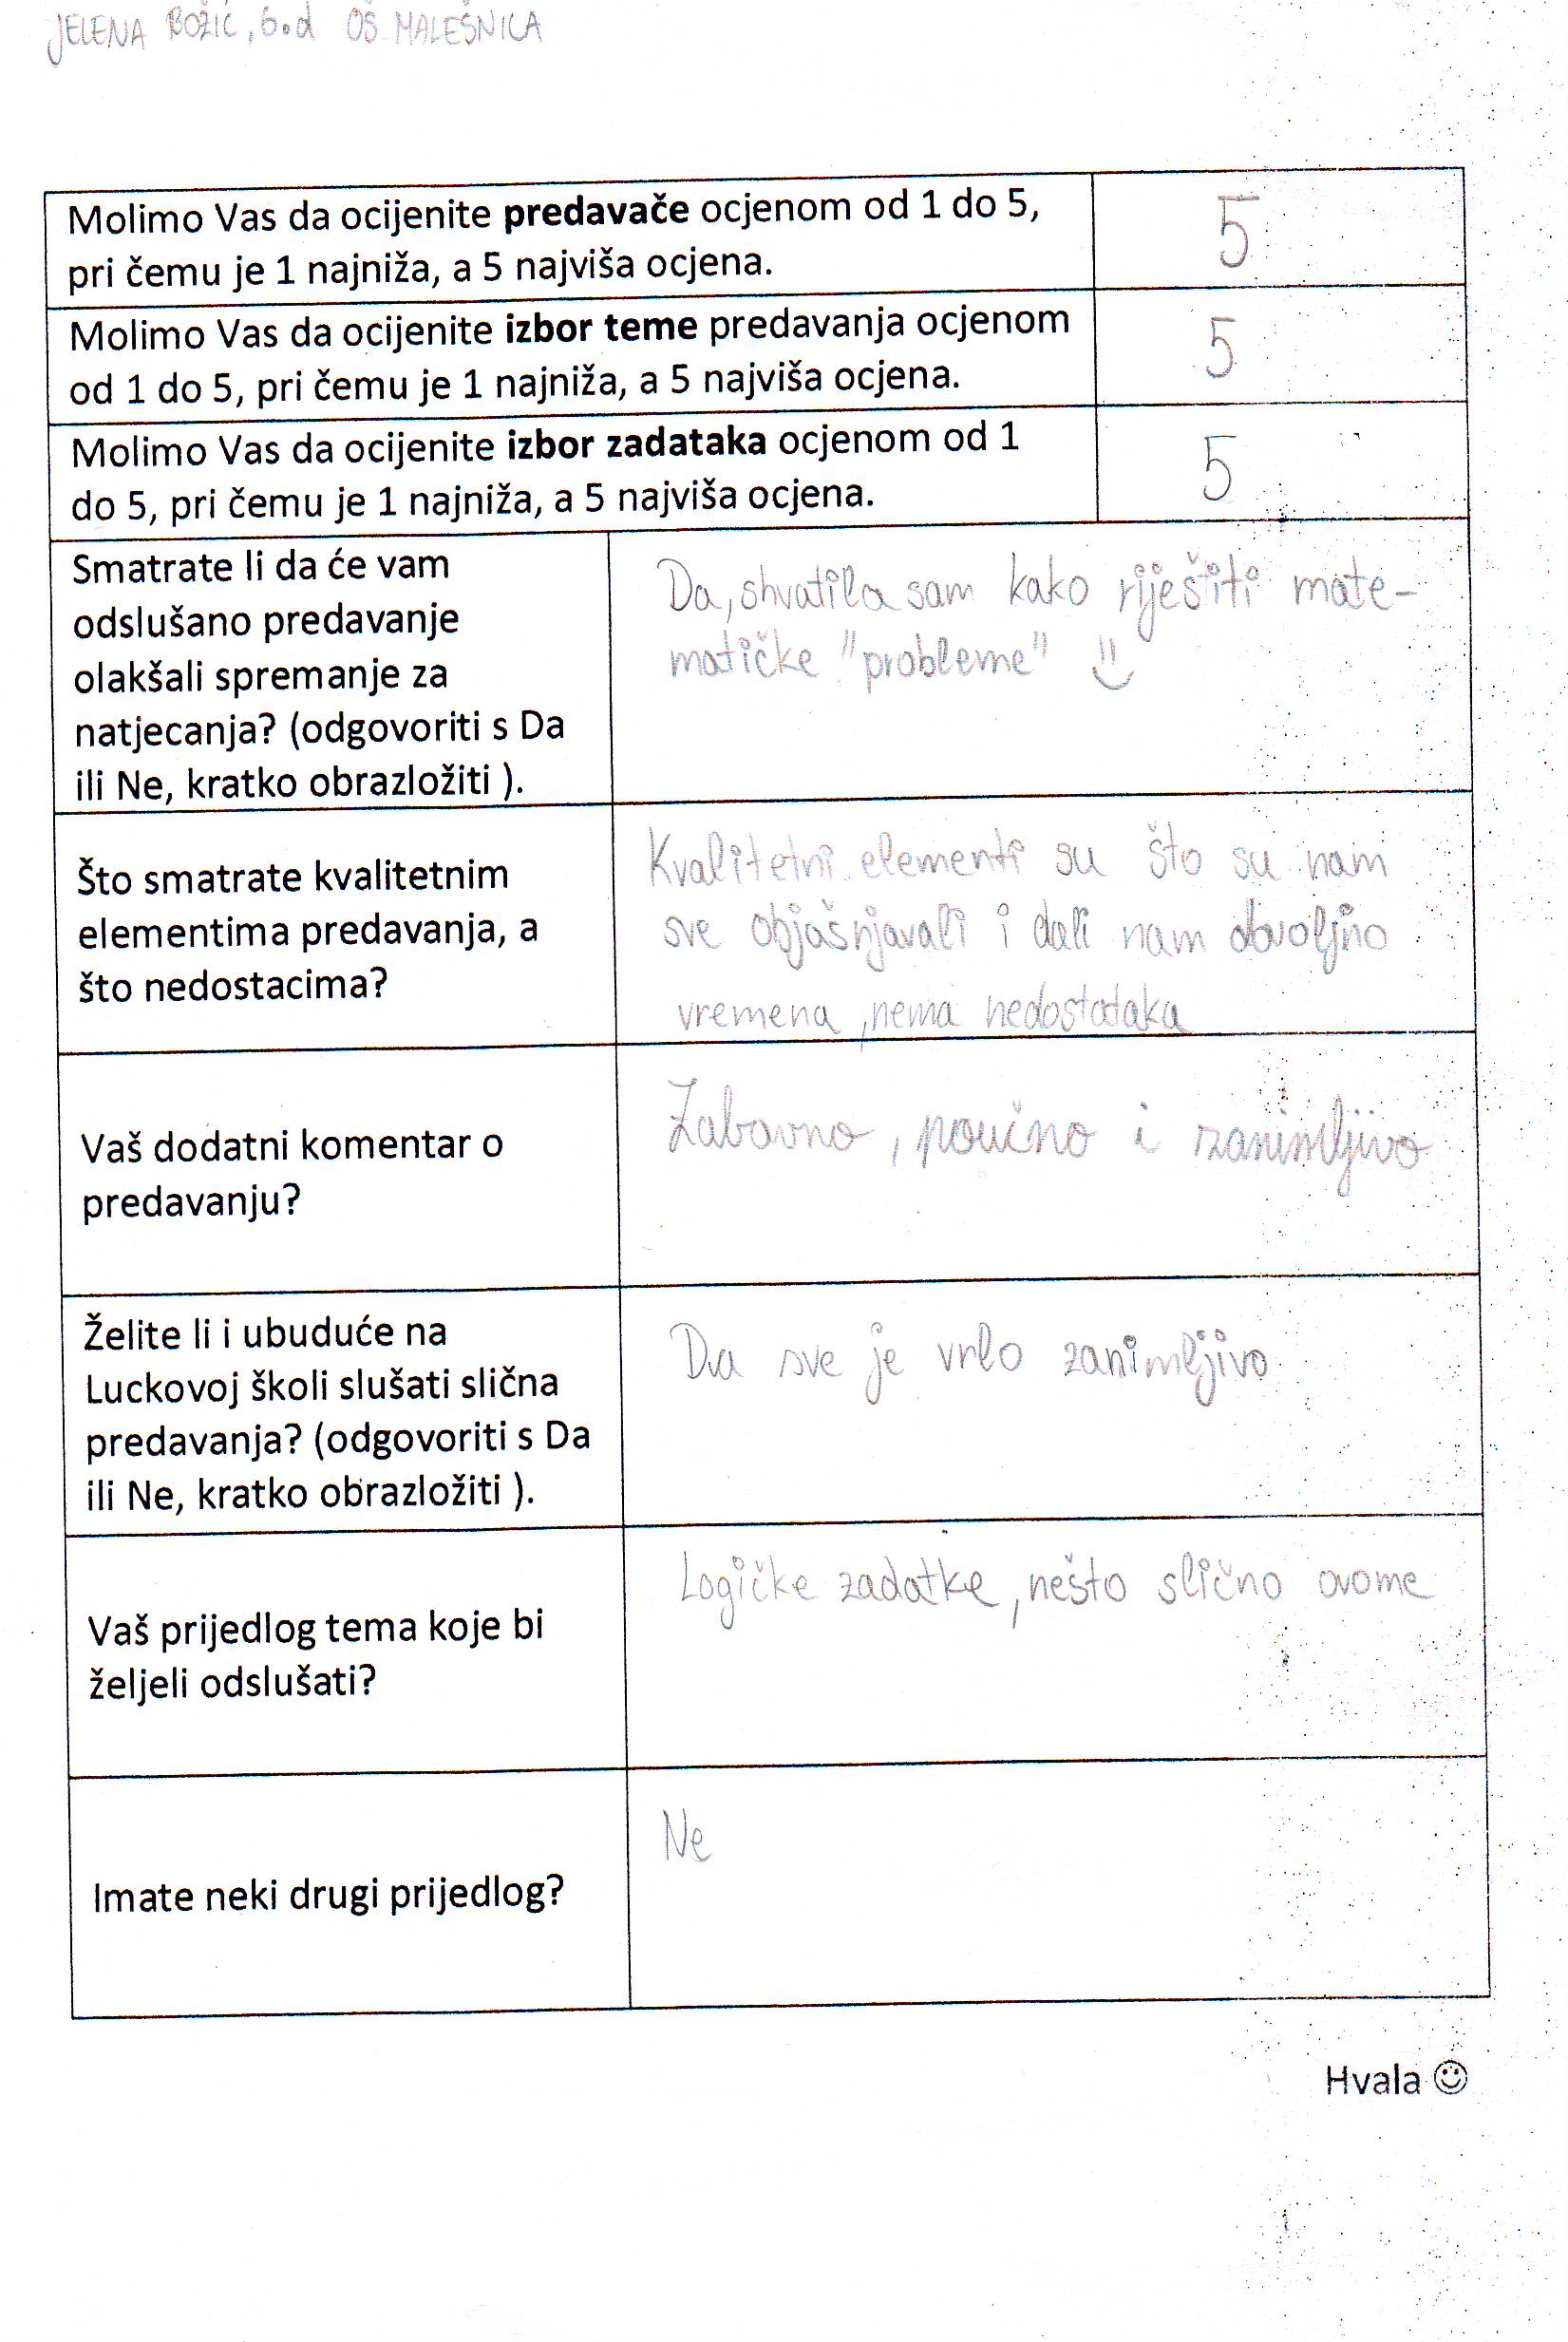 JELENA BOŽIĆ, 6.d OŠ MALEŠNICA
Molimo Vas da ocijenite predavače ocjenom od 1 do 5,
pri čemu je 1 najniža, a 5 najviša ocjena.
5
Molimo Vas da ocijenite izbor teme predavanja ocjenom
od 1 do 5, pri čemu je 1 najniža, a 5 najviša ocjena.
5
Molimo Vas da ocijenite izbor zadataka ocjenom od 1
do 5, pri čemu je 1 najniža, a 5 najviša ocjena.
5
Smatrate li da će vam
odslušano predavanje
olakšali spremanje za
natjecanja? (odgovoriti s Da
ili Ne, kratko obrazložiti ).
Da, shvatila sam kako riješiti mate-
matičke "probleme" :)
Što smatrate kvalitetnim
elementima predavanja, a
što nedostacima?
Kvalitetni elementi su što su nam
sve objašnjavali i dali nam dovoljno
vremena, nema nedostataka
Vaš dodatni komentar o
predavanju?
Zabavno, poučno i zanimljivo
Želite li i ubuduće na
Luckovoj školi slušati slična
predavanja? (odgovoriti s Da
ili Ne, kratko obrazložiti ).
Da sve je vrlo zanimljivo
Vaš prijedlog tema koje bi
željeli odslušati?
Logičke zadatke, nešto slično ovome
Imate neki drugi prijedlog?
Ne
Hvala ☺